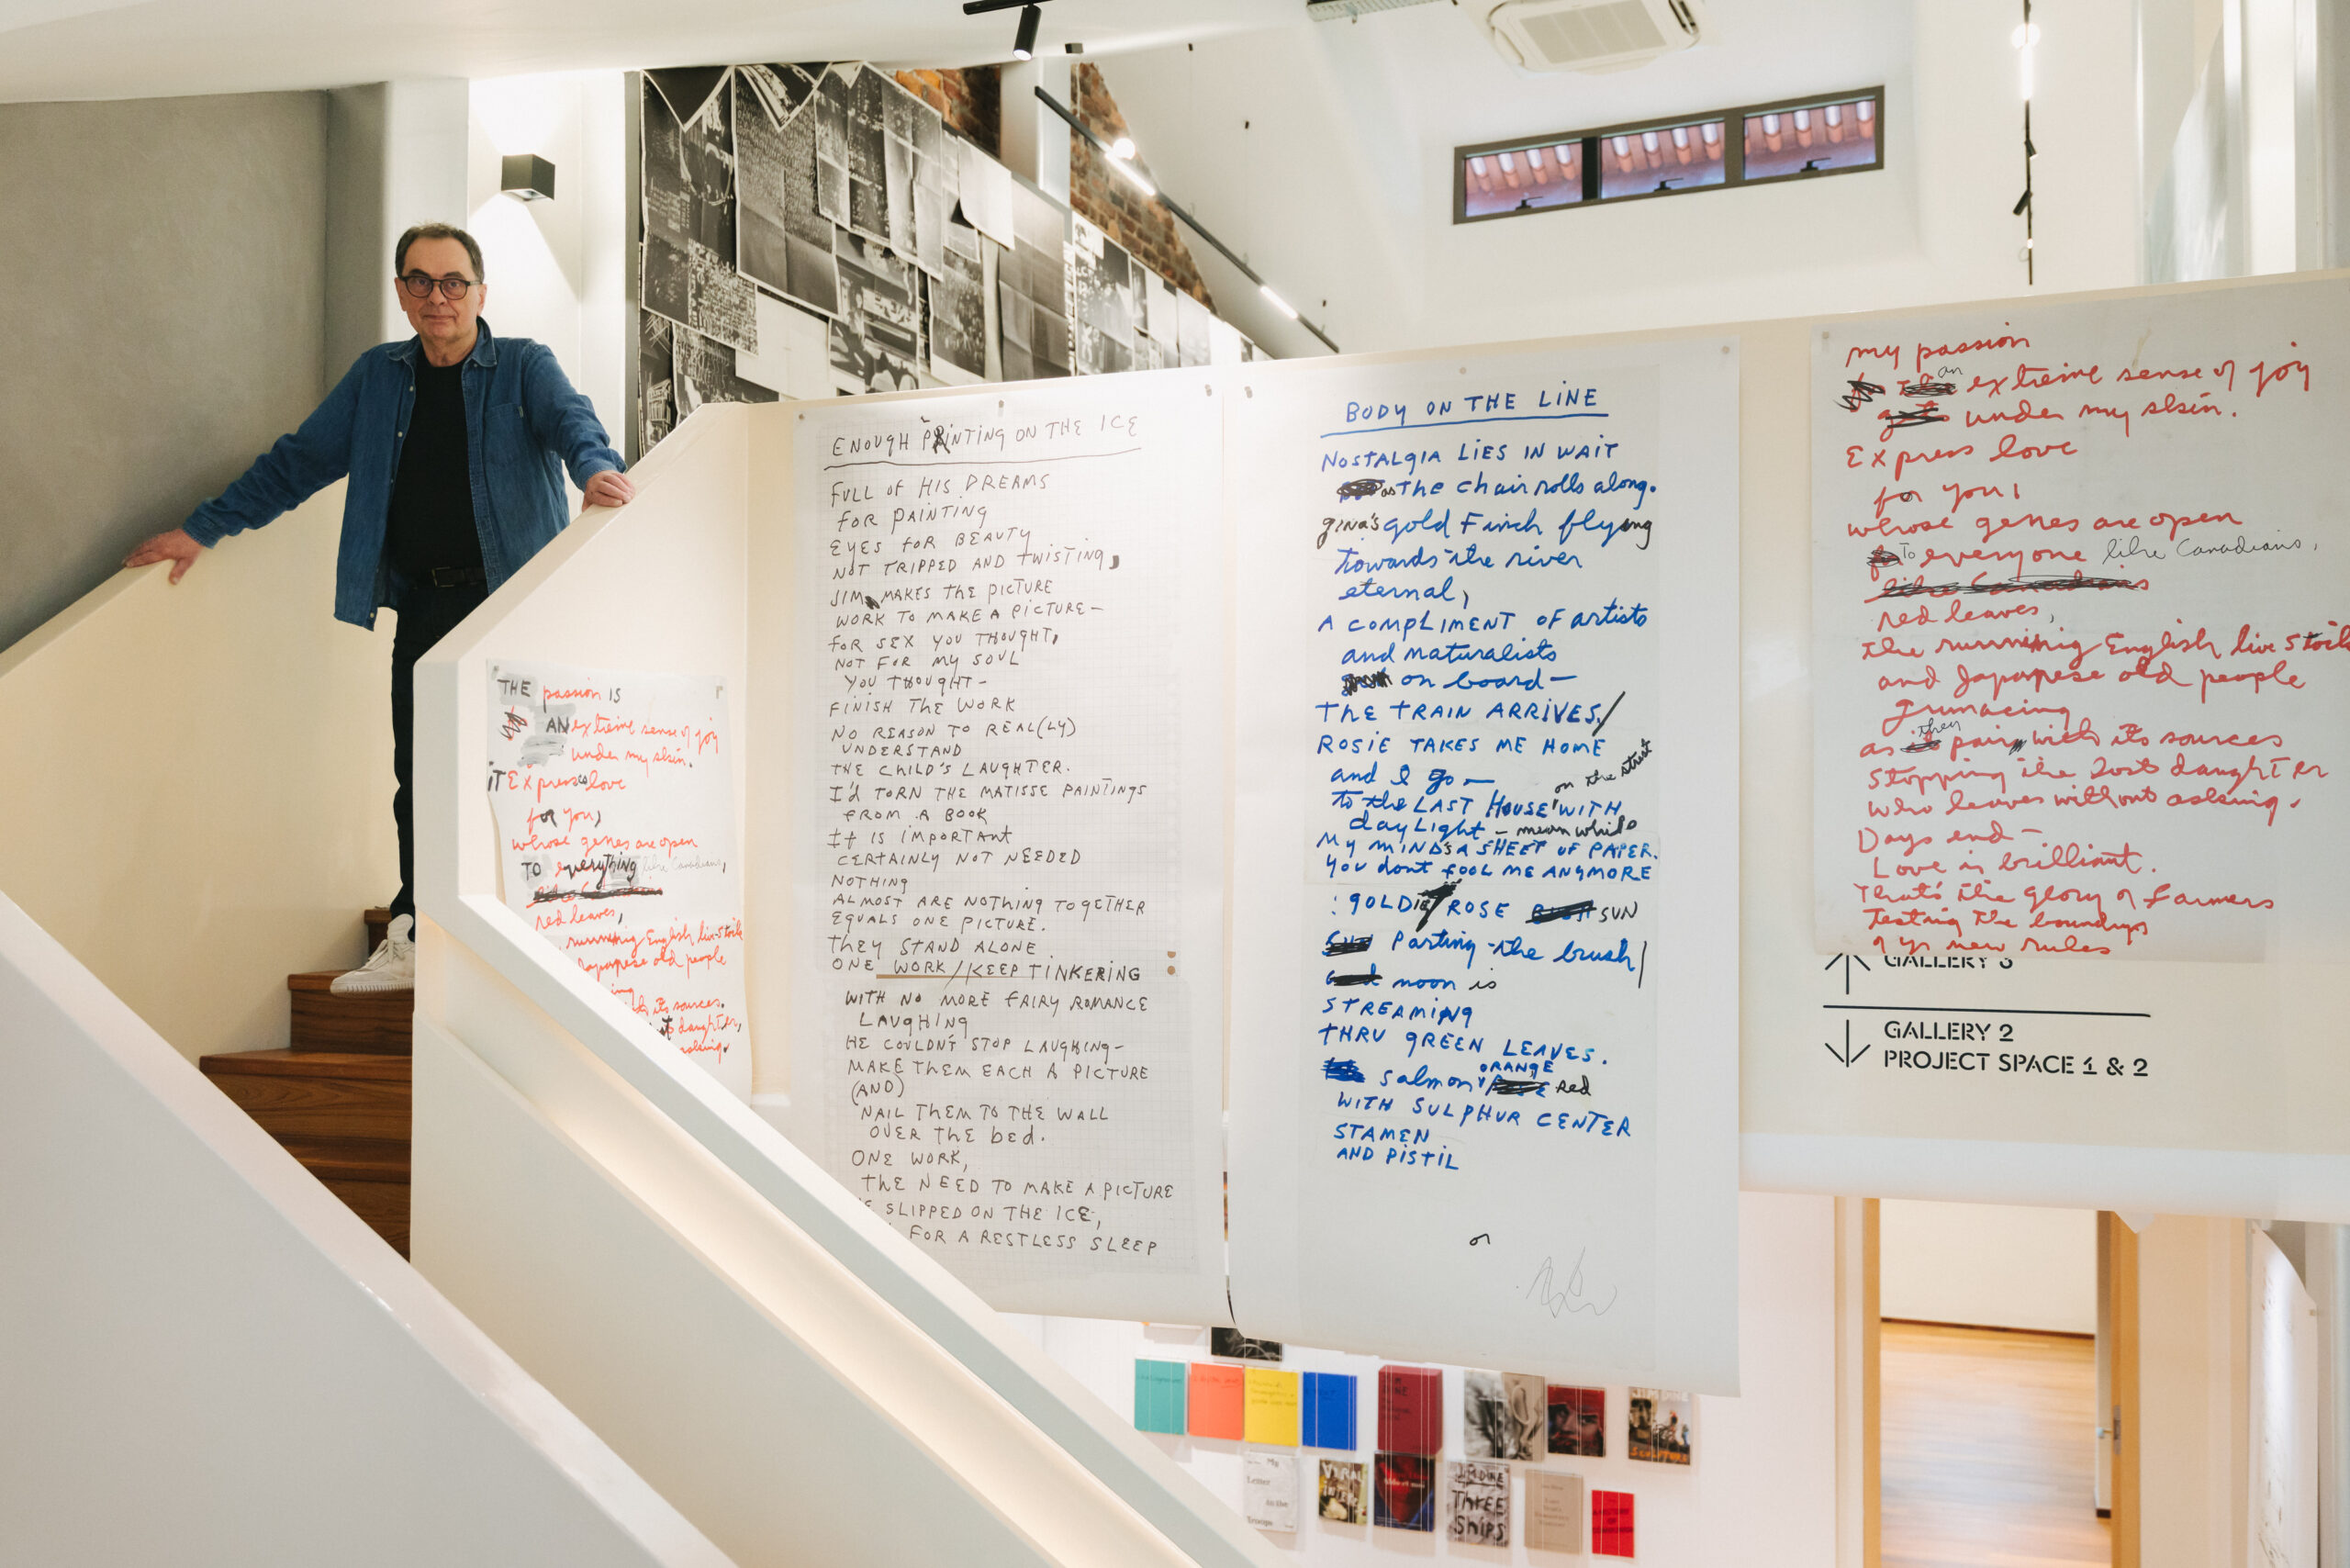 THE passion IS
AN extreme sense of joy
under my skin.
iT Expresses love
for you,
whose genes are open
TO everything like Canadians,
like Canadians
red leaves,
running English live stock
Japanese old people
ing
its sources.
daughter,
asking.
ENOUGH PAINTING ON THE ICE
FULL OF HIS DREAMS
FOR PAINTING
EYES FOR BEAUTY
NOT TRIPPED AND TWISTING,
JIM MAKES THE PICTURE
WORK TO MAKE A PICTURE—
FOR SEX YOU THOUGHT,
NOT FOR MY SOUL
YOU THOUGHT—
FINISH THE WORK
NO REASON TO REAL(LY)
UNDERSTAND
THE CHILD'S LAUGHTER.
I'd TORN THE MATISSE PAINTINGS
FROM A BOOK
It IS IMPORTANT
CERTAINLY NOT NEEDED
NOTHING
ALMOST ARE NOTHING TOGETHER
EQUALS ONE PICTURE.
THEY STAND ALONE
ONE WORK/KEEP TINKERING
WITH NO MORE FAIRY ROMANCE
LAUGHING
HE COULDN'T STOP LAUGHING—
MAKE THEM EACH A PICTURE
(AND)
NAIL THEM TO THE WALL
OVER THE bed.
ONE WORK,
THE NEED TO MAKE A PICTURE
SLIPPED ON THE ICE,
FOR A RESTLESS SLEEP
BODY ON THE LINE
NOSTALGIA LIES IN WAIT
as The chair rolls along.
gina's gold Finch flying
towards the river
eternal,
A COMPLIMENT OF artists
and naturalists
on board—
THE TRAIN ARRIVES/
ROSIE TAKES ME HOME
and I go— on the street
to the LAST HOUSE WITH
dayLight — mean while
MY MIND'S A SHEET OF PAPER.
YOU don't fool ME ANYMORE
: GOLDIE ROSE SUN
Parting the brush/
moon is
STREAMING
THRU GREEN LEAVES.
salmon ORANGE Red
WITH SULPHUR CENTER
STAMEN
AND PISTIL
or
my passion
an extreme sense of joy
under my skin.
Express love
for you,
whose genes are open
To everyone like Canadians,
like Canadians
red leaves,
the running English live stock
and Japanese old people
grimacing
as they pair with its sources
Stopping the lost daughter
who leaves without asking.
Days end—
Love is brilliant.
That's the glory of farmers
Testing The boundrys
of yr new rules
GALLERY 3
GALLERY 2
PROJECT SPACE 1 & 2
My
Letter
to the
Troops
JIM DINE
THREE
SHIPS